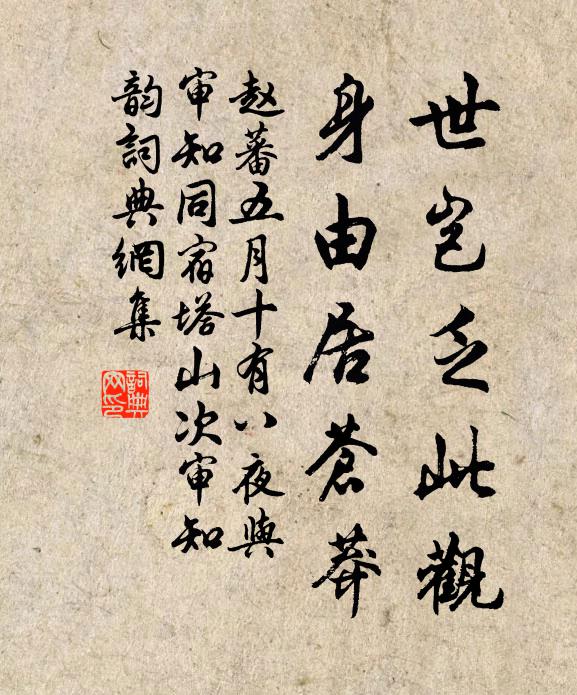 世岂乏此觀
身由居蒼莽
赵蕃五月十有八夜與
审知同宿塔山次审知
韵詞典網集
詞典
网印